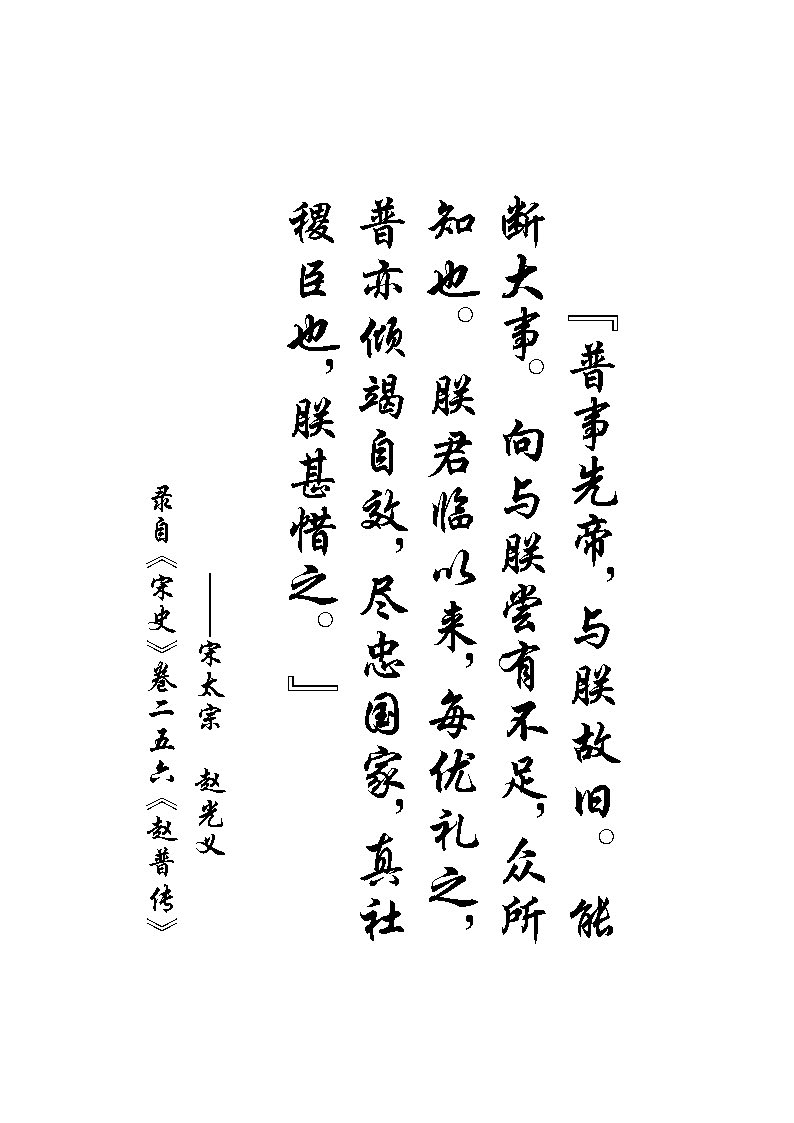 『普事先帝，与朕故旧。能
断大事。向与朕尝有不足，众所
知也。朕君临以来，每优礼之，
普亦倾竭自效，尽忠国家，真社
稷臣也，朕甚惜之。』
——宋太宗 赵光义
录自《宋史》卷二五六《赵普传》